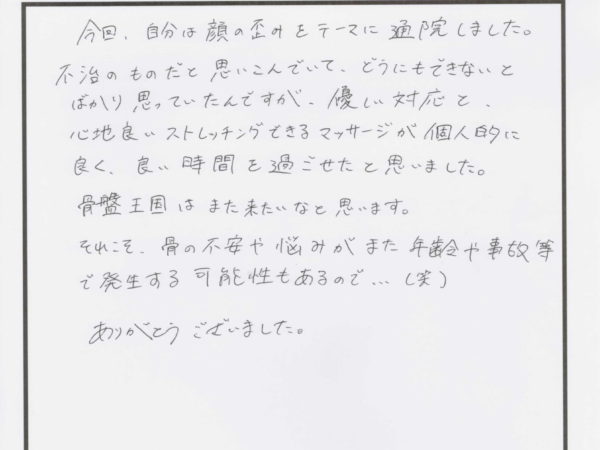 今回、自分は顔の歪みをテーマに通院しました。
不治のものだと思いこんでいて、どうにもできないと
ばかり思っていたんですが、優しい対応と、
心地良いストレッチングできるマッサージが個人的に
良く、良い時間を過ごせたと思いました。
骨盤王国はまた来たいなと思います。
それこそ、骨の不安や悩みがまた年齢や事故等
で発生する可能性もあるので…(笑)
ありがとうございました。